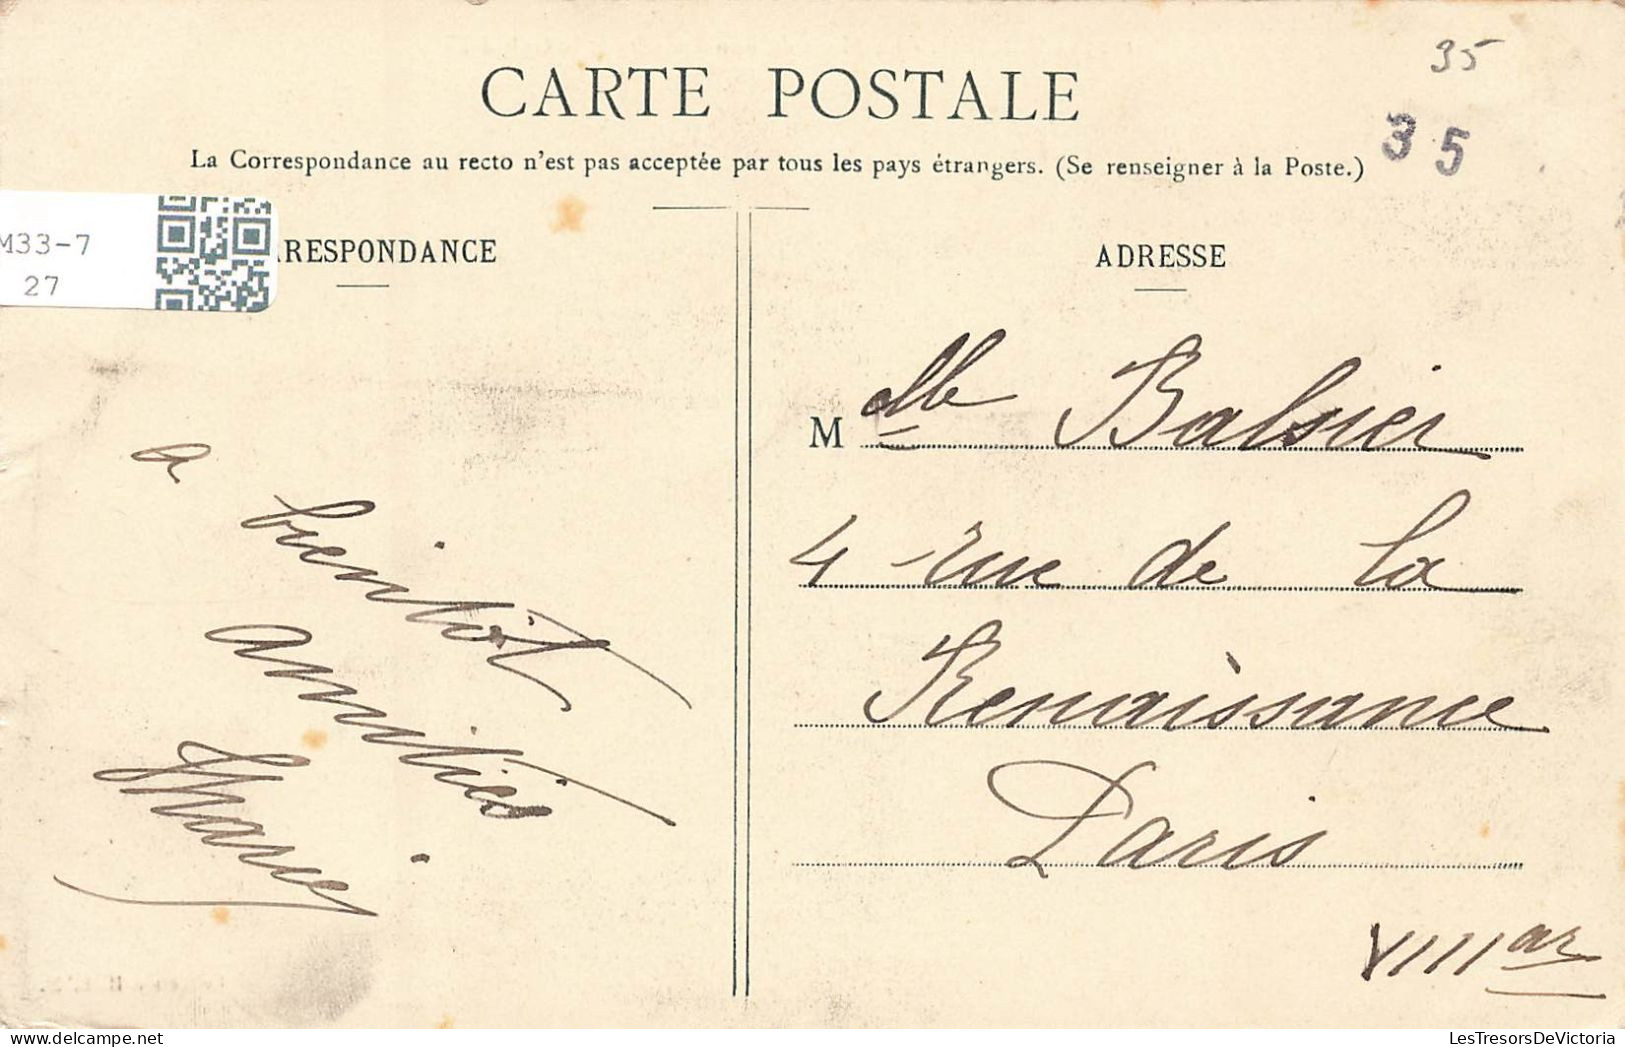 CARTE POSTALE
35
35
La Correspondance au recto n'est pas acceptée par tous les pays étrangers. (Se renseigner à la Poste.)
M33-7
27
RRESPONDANCE
ADRESSE
a
bientôt
amitiés
Marie
Melle Balsier
4 rue de la
Renaissance
Paris
VIIIIar
LesTresorsDeVictoria